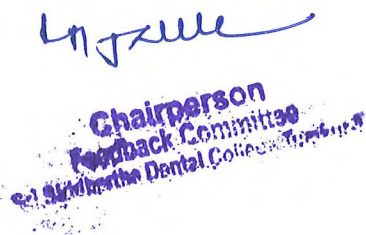 Chairperson
Feedback Committee
Sri Siddhartha Dental College, Tumkur